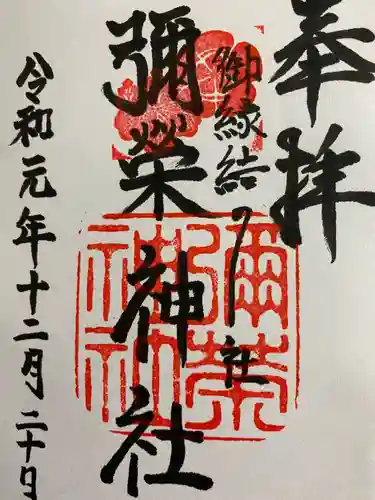 奉拝
御縁結び社
彌榮神社
令和元年十二月二十日
彌榮神社